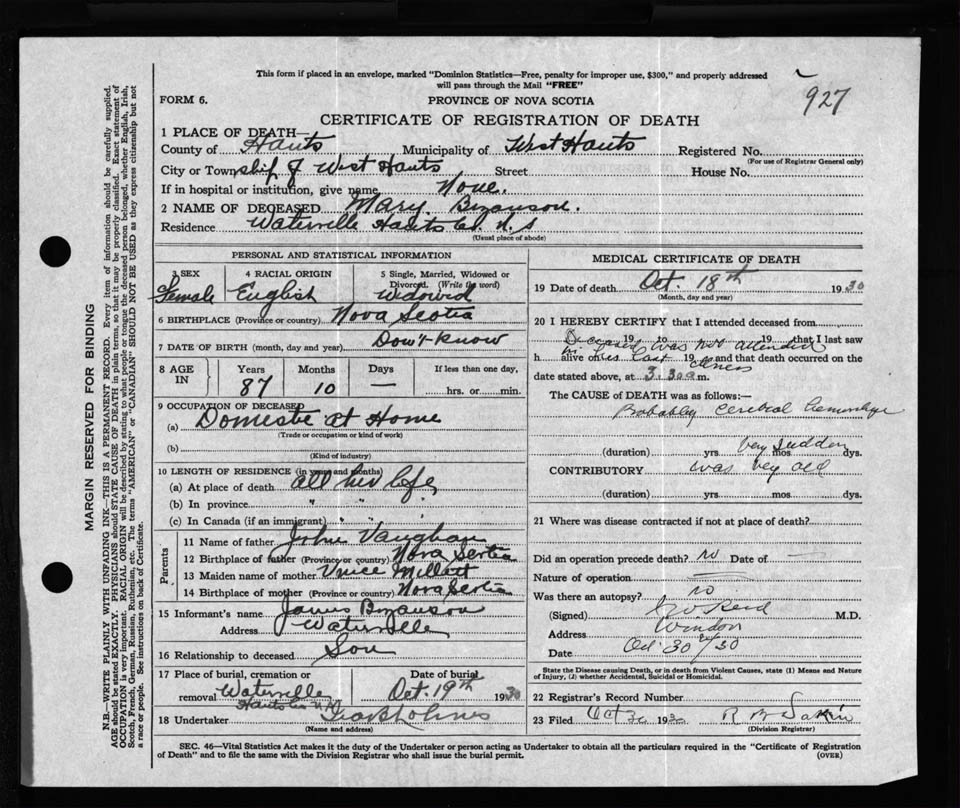 This form if placed in an envelope, marked "Dominion Statistics—Free, penalty for improper use, $300," and properly addressed
will pass through the Mail "FREE"
927
FORM 6. PROVINCE OF NOVA SCOTIA
CERTIFICATE OF REGISTRATION OF DEATH
1 PLACE OF DEATH—
County of Hants Municipality of West Hants Registered No.
(For use of Registrar General only)
City or Township of West Hants Street House No.
If in hospital or institution, give name None.
2 NAME OF DECEASED Mary Bezanson.
Residence Waterville Hants Co. N.S
(Usual place of abode)
PERSONAL AND STATISTICAL INFORMATION
3 SEX 4 RACIAL ORIGIN 5 Single, Married, Widowed or
Divorced. (Write the word)
Female English Widowed
6 BIRTHPLACE (Province or country) Nova Scotia
7 DATE OF BIRTH (month, day and year) Don't-Know
8 AGE IN Years Months Days If less than one day,
87 10 — hrs. or min.
9 OCCUPATION OF DECEASED
(a) Domestic at Home
(Trade or occupation or kind of work)
(b)
(Kind of industry)
10 LENGTH OF RESIDENCE (in years and months)
(a) At place of death all her life
(b) In province " "
(c) In Canada (if an immigrant) " "
Parents
11 Name of father John Vaughan
12 Birthplace of father (Province or country) Nova Scotia
13 Maiden name of mother
14 Birthplace of mother (Province or country) Nova Scotia
15 Informant's name James Bezanson
Address Waterville
16 Relationship to deceased Son
17 Place of burial, cremation or Date of burial
removal Waterville Oct. 19th 1930
Hants Co N.S
18 Undertaker
(Name and address)
MEDICAL CERTIFICATE OF DEATH
19 Date of death Oct. 18th 1930
(Month, day and year)
20 I HEREBY CERTIFY that I attended deceased from
Deceased was not attended
19 to 19 that I last saw
h alive on 19 and that death occurred on the
in last illness
date stated above, at 3.30 a m.
The CAUSE OF DEATH was as follows:—
Probably Cerebral hemorrhage
very sudden
(duration) yrs. mos. dys.
CONTRIBUTORY was very old
(duration) yrs. mos. dys.
21 Where was disease contracted if not at place of death?
Did an operation precede death? no Date of —
Nature of operation
Was there an autopsy? no
(Signed) Reid M.D.
Address Windsor
Date Oct 30/30
State the Disease causing Death, or in death from Violent Causes, state (1) Means and Nature
of Injury, (2) whether Accidental, Suicidal or Homicidal.
22 Registrar's Record Number
23 Filed Oct 1930
(Division Registrar)
SEC. 46—Vital Statistics Act makes it the duty of the Undertaker or person acting as Undertaker to obtain all the particulars required in the "Certificate of Registration
of Death" and to file the same with the Division Registrar who shall issue the burial permit. (OVER)
MARGIN RESERVED FOR BINDING
N.B.—WRITE PLAINLY WITH UNFADING INK—THIS IS A PERMANENT RECORD. Every item of information should be carefully supplied.
AGE should be stated EXACTLY. PHYSICIANS should STATE CAUSE OF DEATH in plain terms, so that it may be properly classified. Exact statement of
OCCUPATION is very important. RACIAL ORIGIN will be described by stating to what people or tongue the deceased person belonged, whether English, Irish,
Scotch, French, German, Russian, Ruthenian, etc. The terms "AMERICAN" or "CANADIAN" SHOULD NOT BE USED as they express citizenship but not
a race or people. See instructions on back of Certificate.